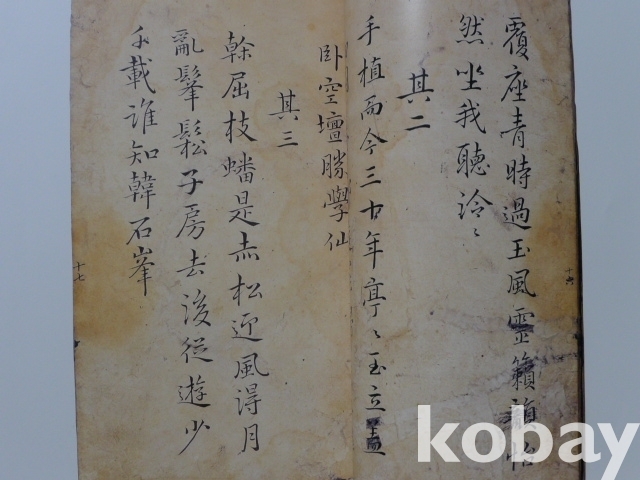 覆座青時過玉風靈籟頹怡
然坐我聽泠〻
其二
手植而今三十年亭〻玉立
卧空壇勝學仙
其三
幹屈枝蟠是赤松近風得月
亂髼鬆子房去後從遊少
千載誰知韓石峯
十六
十七
kobay